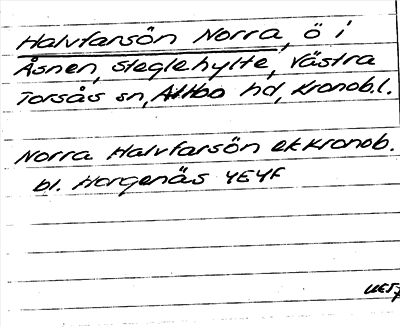 Halvfarsön Norra, ö i
Åsnen, Steglehylte, Västra
Torsås sn, Allbo hd, Kronob.l.
Norra Halvfarsön ek Kronob.
bl. Horgenäs 4E4f